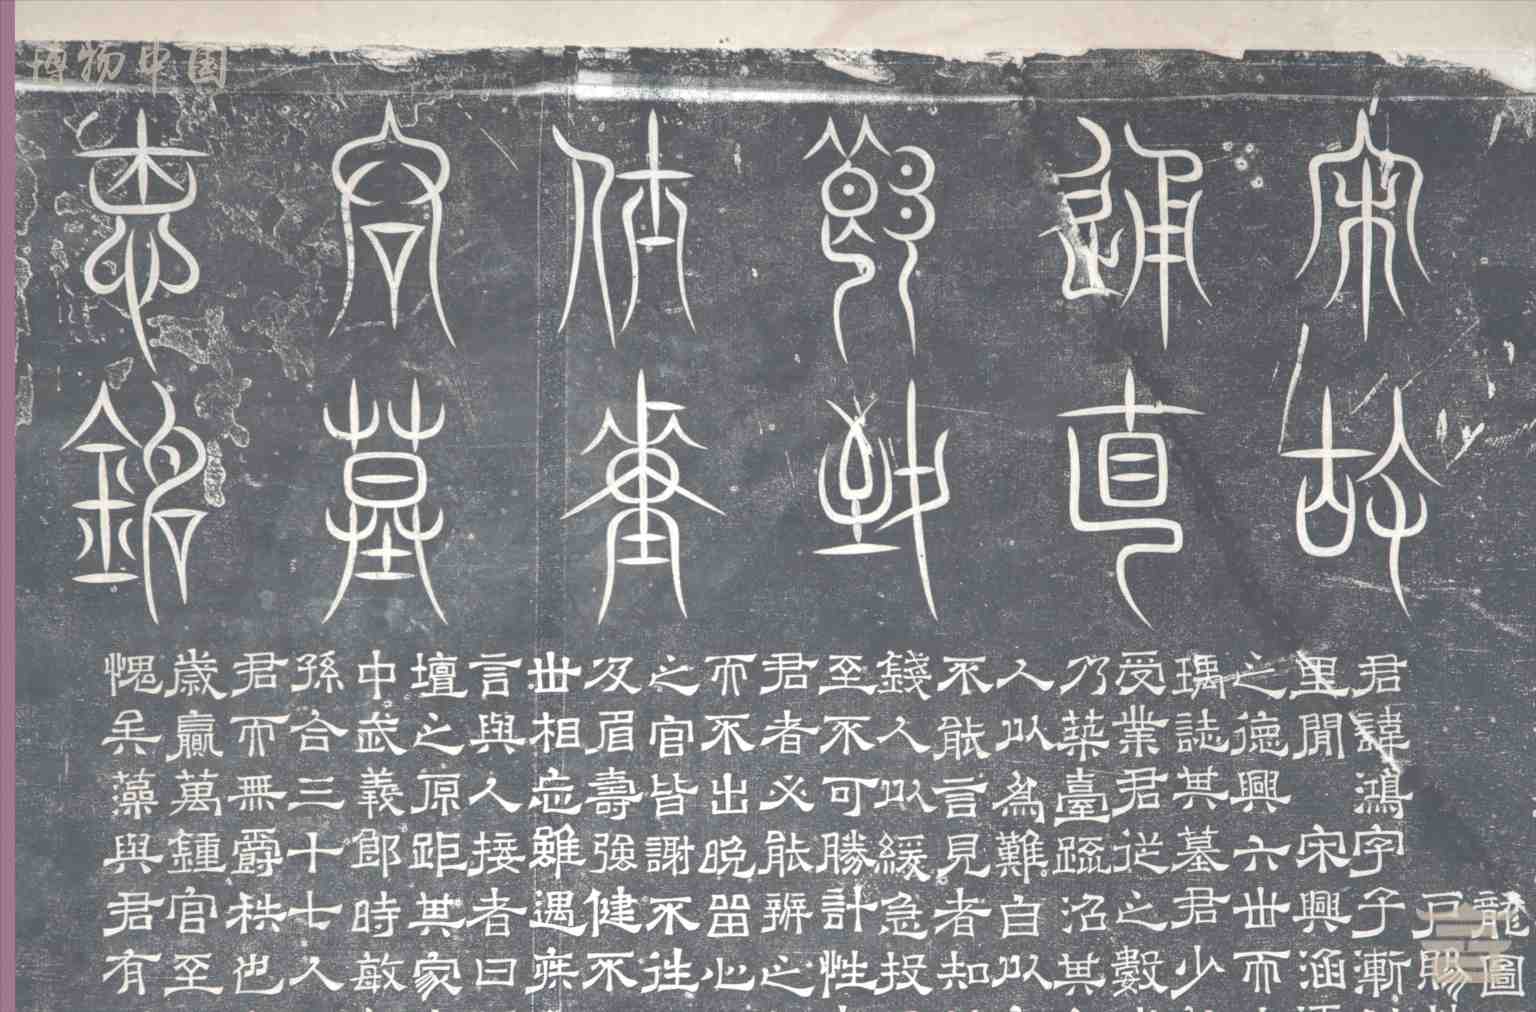 宋故
通直
節致
仕李
府墓
志銘
龍圖
戸賜
君諱鴻字子漸
里閒 宋興涵
之德興六世而
瑀誌其墓君少
受業君從之數
乃築臺躧沼其
人以為難自以
不能言見者知
錢人以緩急投
至不可勝計性
君者必能辨之
而不出晚留心
之官皆謝不往
及眉壽強健不
世相忘雖遇疾
言與人接者曰
壇之原距其家
中武義郎時敏
孫合三十七人
君而無爵秩也
歲贏萬鍾官至
愧矣藻與君有
博物中国